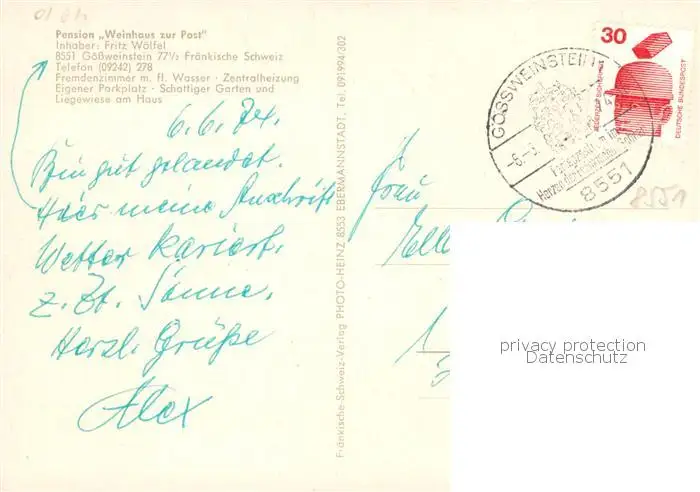 Pension „Weinhaus zur Post"
Inhaber: Fritz Wölfel
8551 Gößweinstein 77½ Fränkische Schweiz
Telefon (09242) 278
Fremdenzimmer m. fl. Wasser · Zentralheizung
Eigener Parkplatz · Schattiger Garten und
Liegewiese am Haus
6.6.74.
Bin gut gelandet.
Hier meine Anschrift
Wetter kariert.
z. Zt. Sonne.
Herzl. Grüße
Alex
Fränkische Schweiz-Verlag PHOTO-HEINZ 8553 EBERMANNSTADT, Tel. 091994/302
30
JEDERZEIT SICHERHEIT
DEUTSCHE BUNDESPOST
GÖSSWEINSTEIN
-6.-
im
Herzen der Fränkischen Schweiz
8551
8551
Frau
privacy protection
Datenschutz